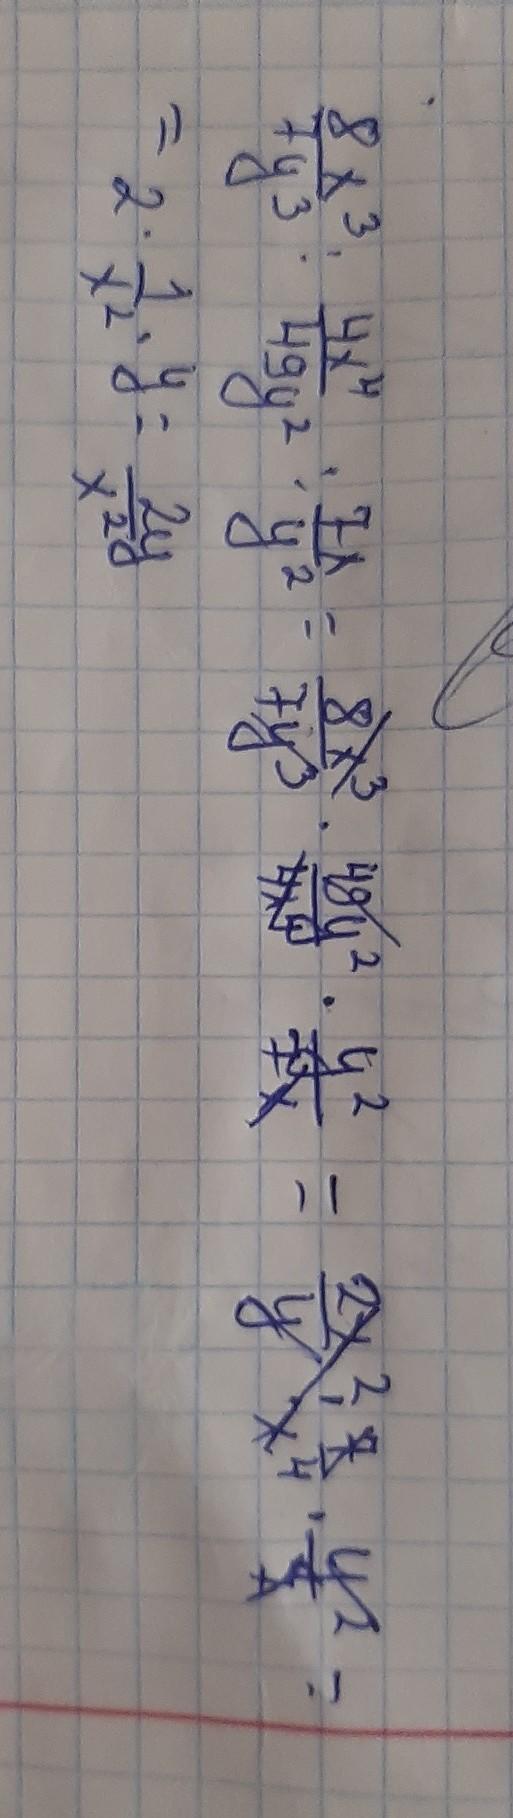 8x³/7y³ : 4x⁴/49y² : 7x/y² = 8x³/7y³ · 49y²/4x⁴ · y²/7x = 2x²/y · 1/x⁴ · y²/1 =
= 2 · 1/x² · y = 2y/x²